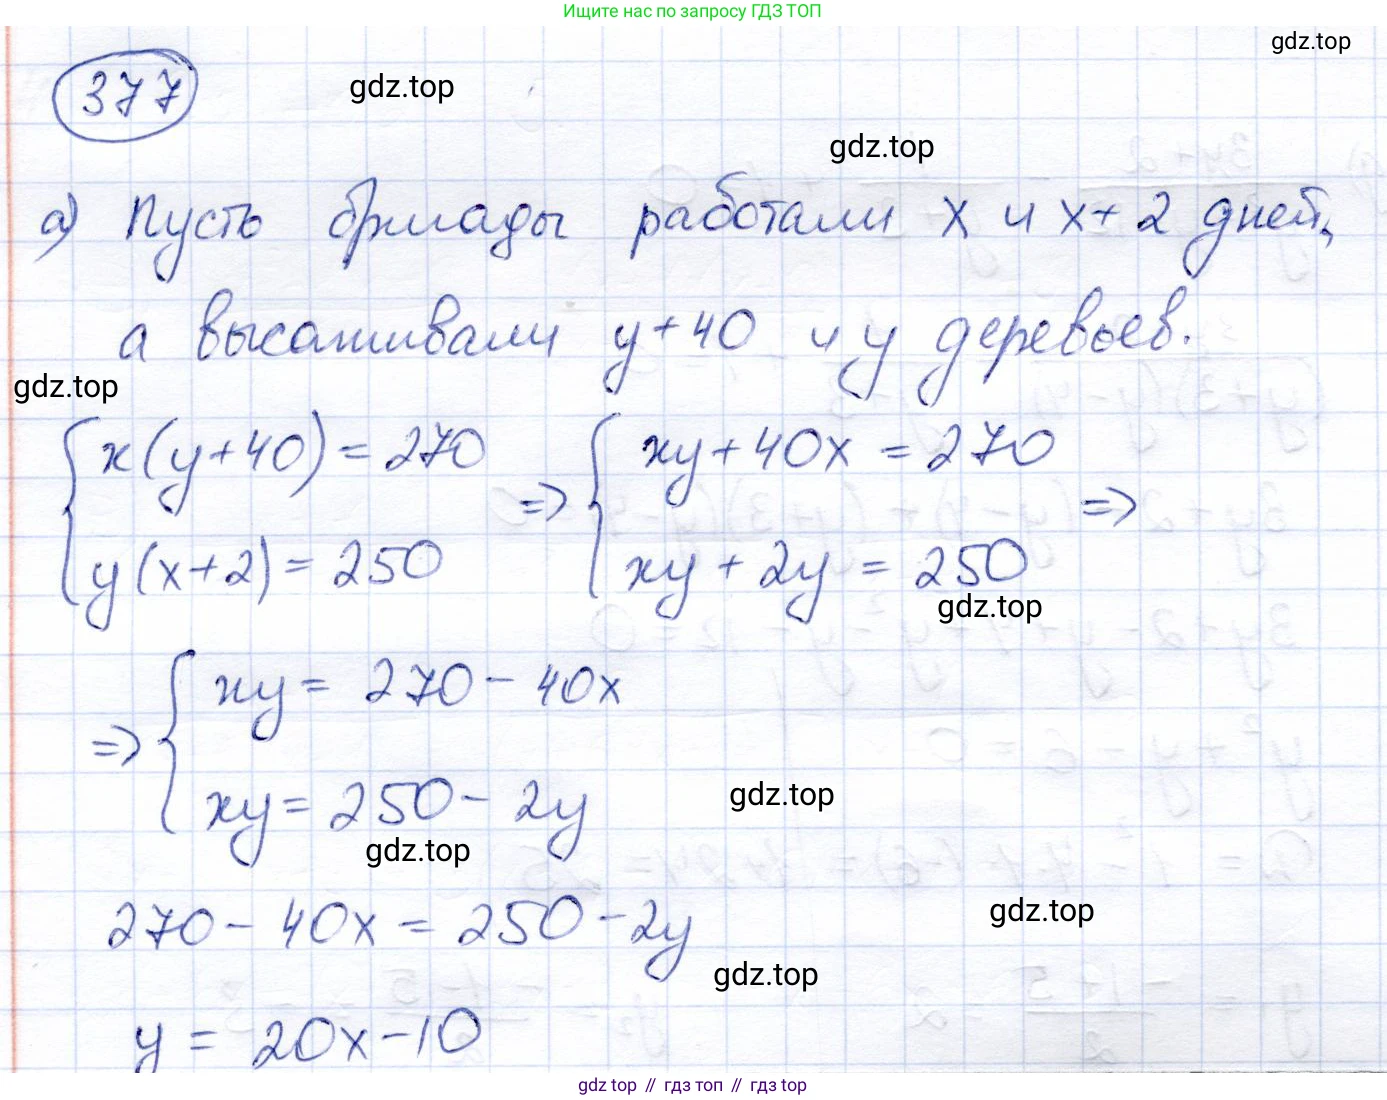 Ищите нас по запросу ГДЗ ТОП
gdz.top
377
gdz.top
gdz.top
а) Пусть бригады работали x и x+2 дней,
а высаживали y+40 и y деревьев.
gdz.top
{ x(y+40) = 270 ⇒ { xy+40x = 270 ⇒
y(x+2) = 250 xy + 2y = 250
gdz.top
⇒ { xy = 270 - 40x
xy = 250 - 2y
gdz.top
gdz.top
270 - 40x = 250 - 2y
gdz.top
gdz.top
y = 20x - 10
gdz top // гдз топ // гдз top